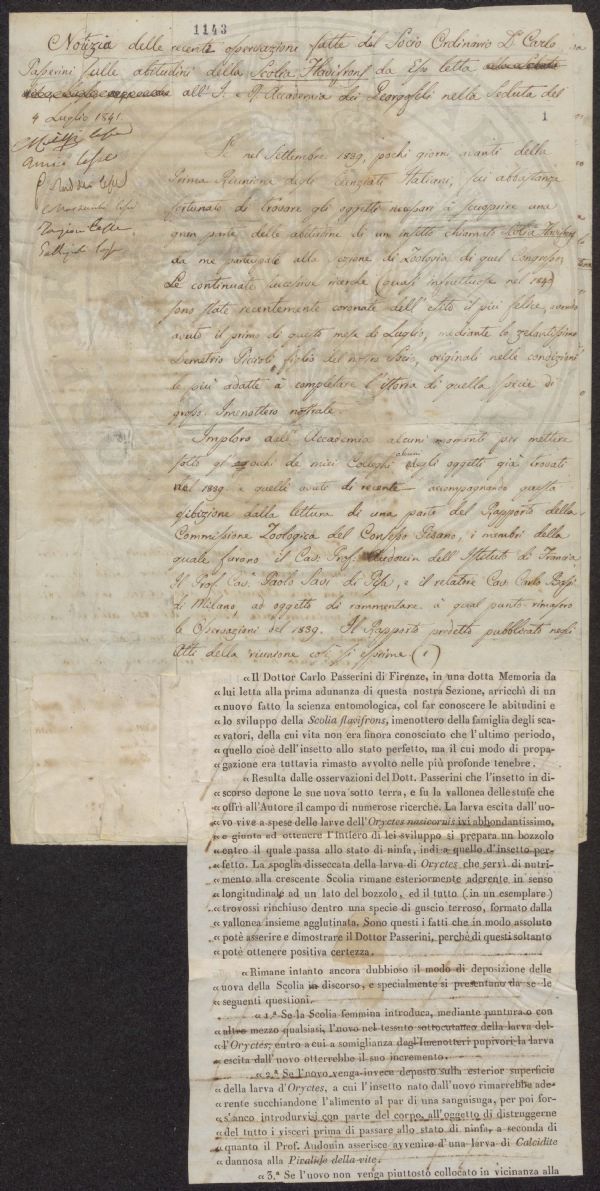 1143
Notizia delle recenti osservazione fatte dal Socio Ordinario Dr Carlo
Passerini sulle abitudini della Scolia Flavifrons da Esso letta
all' I. e R. Accademia dei Georgofili nella Seduta del
4 Luglio 1841.
1
Se nel Settembre 1839, pochi giorni avanti della
Prima Riunione degli Scienziati Italiani, fui abbastanza
fortunato di trovare gli oggetti necessari a scuoprire una
gran parte delle abitudini di un insetto chiamato Scolia Flavifrons
da me partecipate alla Sezione di Zoologia di quel Congresso,
Le continuate successive ricerche (quasi infruttuose nel 1840)
sono state recentemente coronate dell' esito il più felice, avendo
avuto il primo di questo mese di Luglio, mediante lo zelantissimo
Demetrio Piccioli figlio del nostro Socio, originali nelle condizioni
le più adatte à completare l'istoria di quella specie di
grosso Imenottero nostrale.
Imploro dall' Accademia alcuni momenti per mettere
sotto gl' occhi de miei Colleghi alcuni degli oggetti già trovati
nel 1839 e quelli avuti di recente accompagnando questa
esibizione dalla lettura di una parte del Rapporto della
Commissione Zoologica del Consesso Pisano, i membri della
quale furono il Cav. Prof. Audouin dell' Istituto di Francia,
Il Prof. Cav. Paolo Savi di Pisa, e il relatore Cav. Carlo Bassi
di Milano, ad oggetto di rammentare à qual punto rimasero
le Osservazioni del 1839. Il Rapporto predetto pubblicato negli
Atti della riunione così si esprime (1)
« Il Dottor Carlo Passerini di Firenze, in una dotta Memoria da
« lui letta alla prima adunanza di questa nostra Sezione, arricchì di un
« nuovo fatto la scienza entomologica, col far conoscere le abitudini e
« lo sviluppo della Scolia flavifrons, imenottero della famiglia degli sca-
« vatori, della cui vita non era finora conosciuto che l'ultimo periodo,
« quello cioè dell'insetto allo stato perfetto, ma il cui modo di propa-
« gazione era tuttavia rimasto avvolto nelle più profonde tenebre.
« Resulta dalle osservazioni del Dott. Passerini che l'insetto in di-
« scorso depone le sue nova sotto terra, e fu la vallonea delle stufe che
« offrì all'Autore il campo di numerose ricerche. La larva escita dall'uo-
« vo vive a spese delle larve dell'Oryctes nasicornis ivi abbondantissimo,
« e giunta ad ottenere l'intiero di lei sviluppo si prepara un bozzolo
« entro il quale passa allo stato di ninfa, indi a quello d'insetto per-
« fetto. La spoglia disseccata della larva di Oryctes che servì di nutri-
« mento alla crescente Scolia rimane esteriormente aderente in senso
« longitudinale ad un lato del bozzolo, ed il tutto (in un esemplare)
« trovossi rinchiuso dentro una specie di guscio terroso, formato dalla
« vallonea insieme agglutinata. Sono questi i fatti che in modo assoluto
« potè asserire e dimostrare il Dottor Passerini, perchè di questi soltanto
« potè ottenere positiva certezza.
« Rimane intanto ancora dubbioso il modo di deposizione delle
« uova della Scolia in discorso, e specialmente si presentano da se le
« seguenti questioni.
« 1.ª Se la Scolia femmina introduca, mediante puntura o con
« altro mezzo qualsiasi, l'uovo nel tessuto sottocutaneo della larva del-
« l'Oryctes, entro a cui a somiglianza degl'Imenotteri pupivori la larva
« escita dall'uovo otterrebbe il suo incremento.
« 2.ª Se l'uovo venga invece deposto sulla esterior superficie
« della larva d'Oryctes, a cui l'insetto nato dall'uovo rimarrebbe ade-
« rente succhiandone l'alimento al par di una sanguisuga, per poi for-
« s'anco introdurvisi con parte del corpo, all'oggetto di distruggerne
« del tutto i visceri prima di passare allo stato di ninfa, a seconda di
« quanto il Prof. Audouin asserisce avvenire d'una larva di Calcidite
« dannosa alla Piralide della vite.
« 3.ª Se l'uovo non venga piuttosto collocato in vicinanza alla